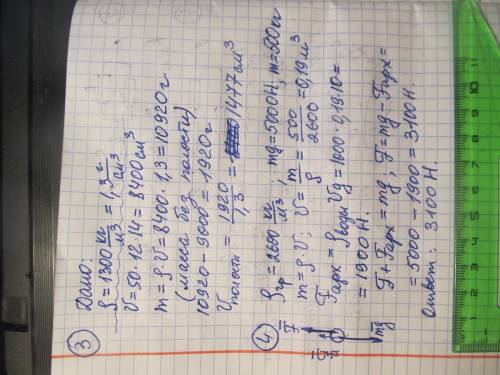 ③ Дано:
ρ = 1300 кг/м³ = 1,3 г/см³
V = 50·12·14 = 8400 см³
m = ρV = 8400·1,3 = 10920 г
(масса без полости)
10920 - 9000 = 1920 г
V полости = 1920/1,3 = 1477 см³
④ ρгр = 2600 кг/м³, mg = 5000 Н; m = 500 кг
m = ρ·V; V = m/ρ = 500/2600 = 0,19 м³
Fарх = ρводы Vg = 1000·0,19·10 =
= 1900 Н.
F + Fарх = mg; F = mg - Fарх =
= 5000 - 1900 = 3100 Н.
Ответ: 3100 Н.
F
mg
1 2 3 4 5 6 7 8 9 10 11